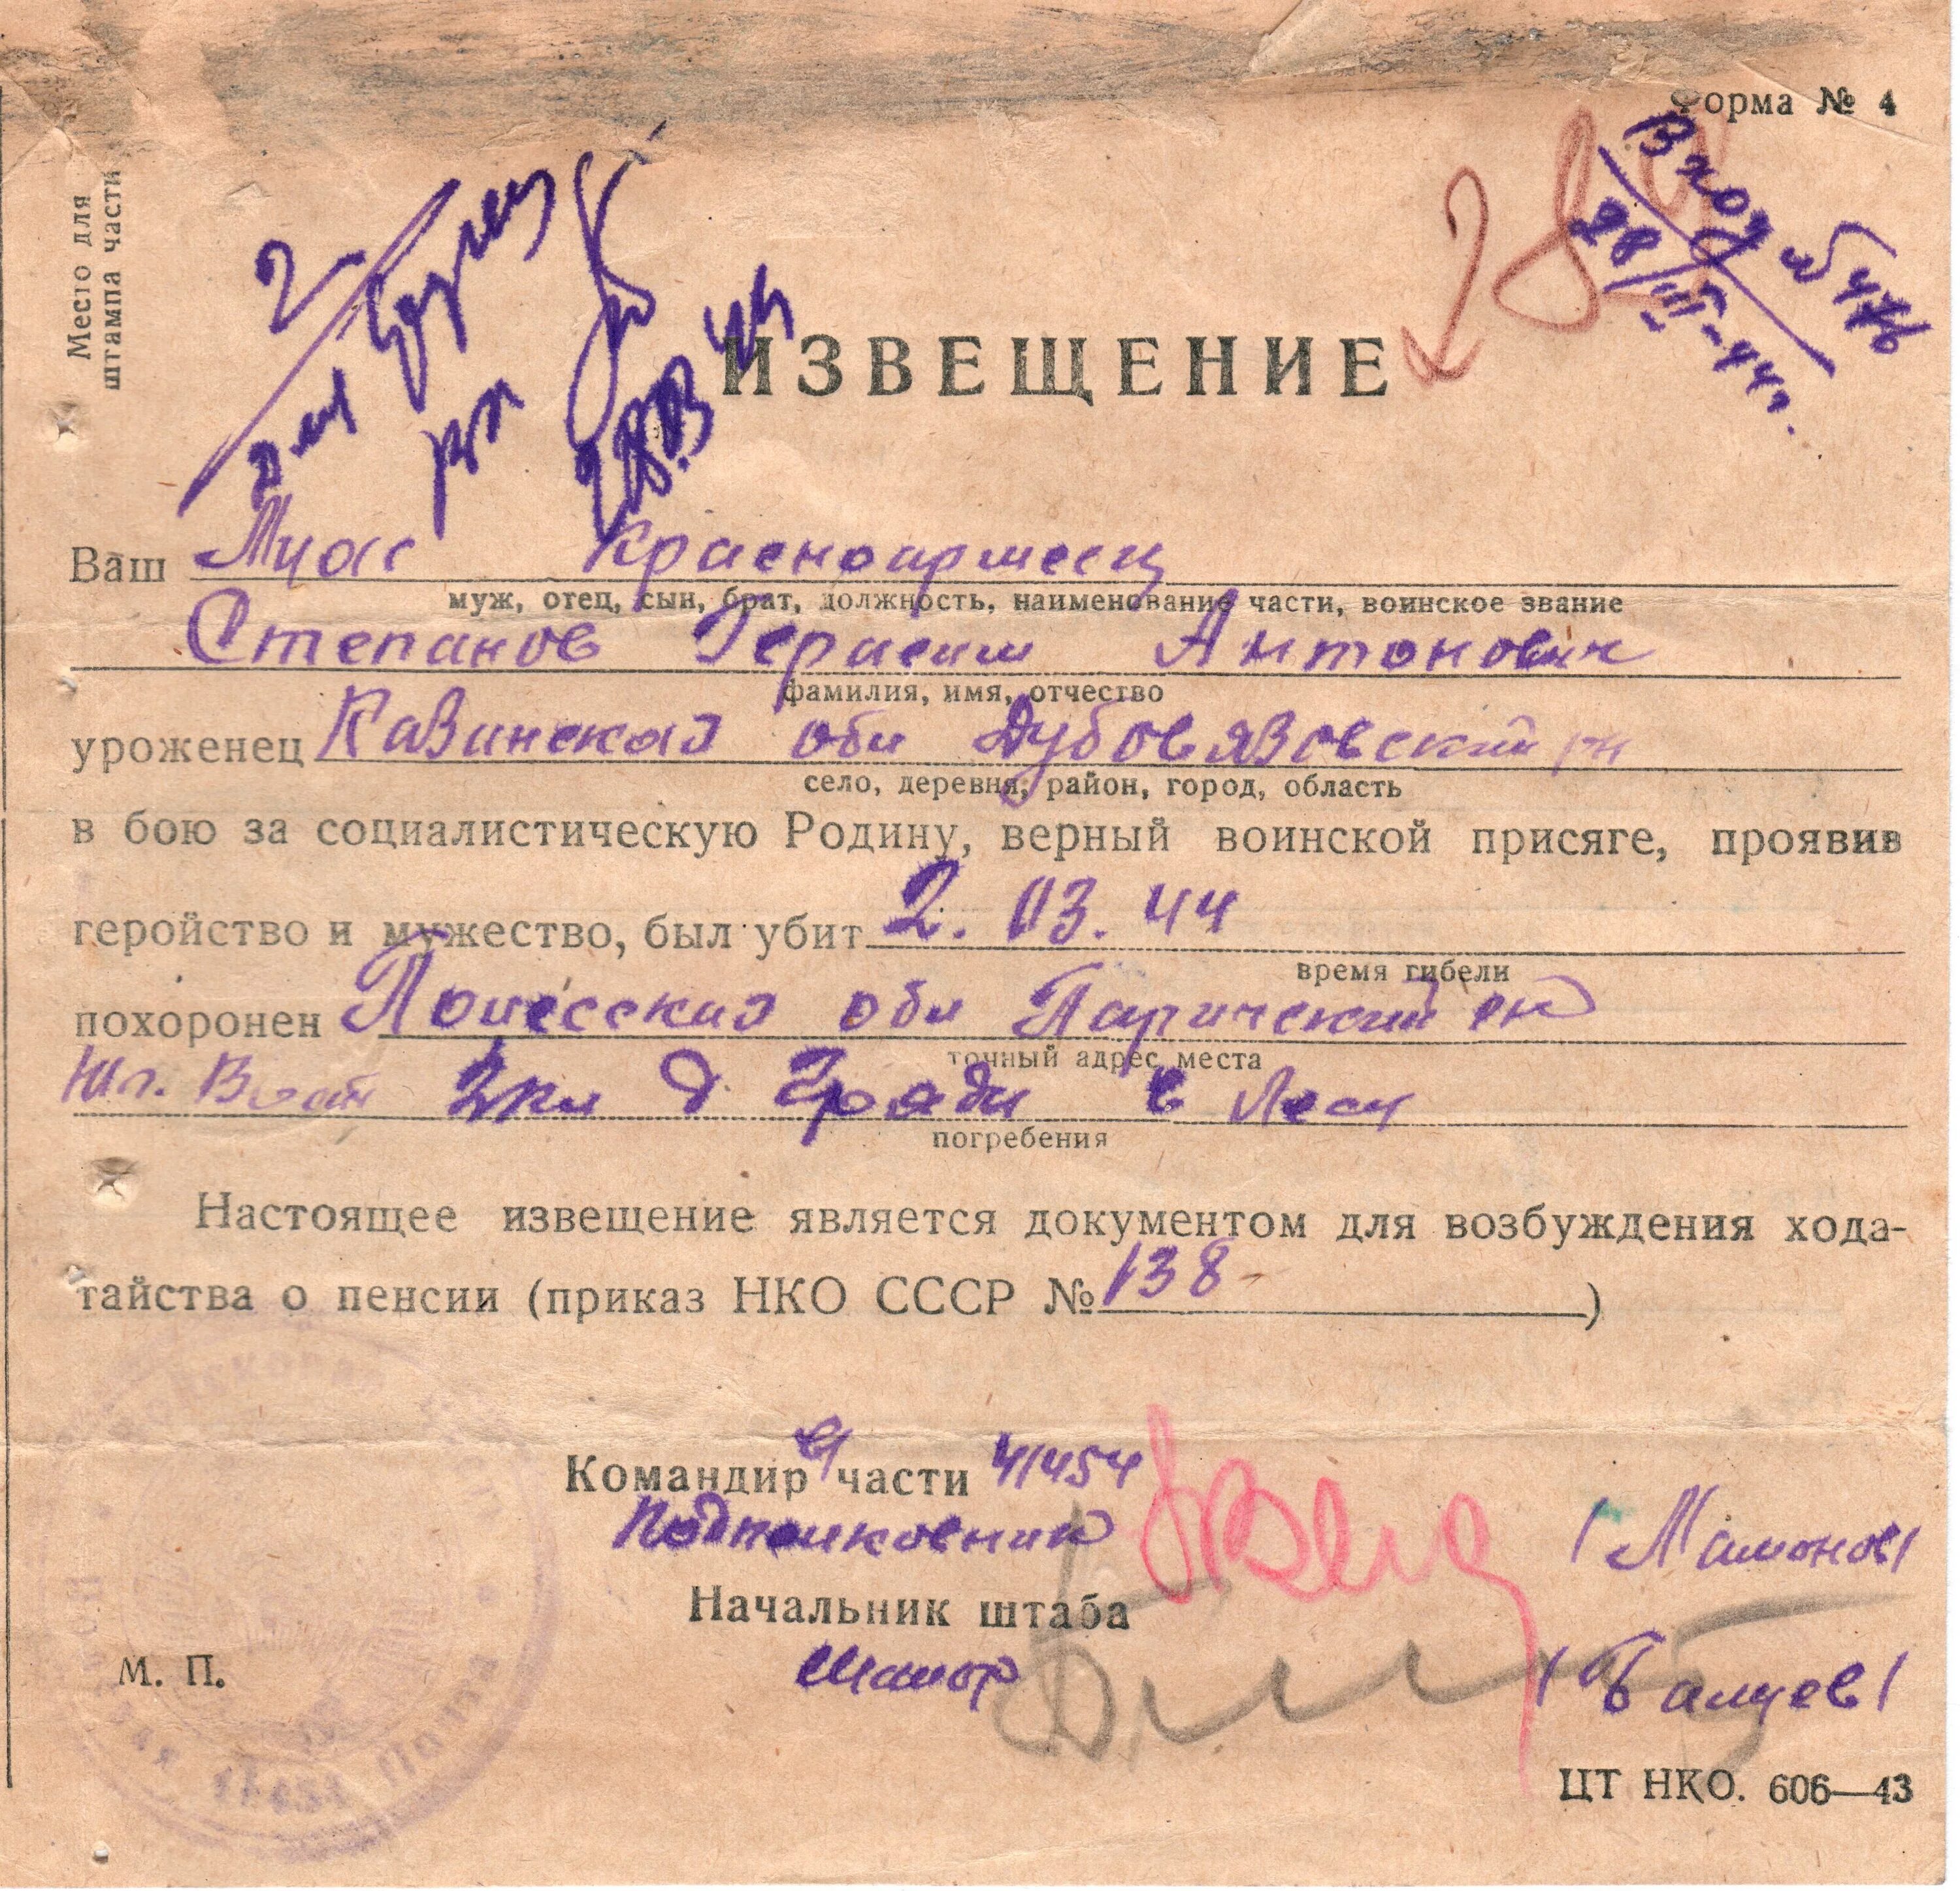 Форма № 4
Место для
штампа части
Вход № 476
28/III-44г.
28
2
28.03 44
ИЗВЕЩЕНИЕ
Ваш Муж красноармеец
муж, отец, сын, брат, должность, наименование части, воинское звание
Степанов Герасим Антонович
фамилия, имя, отчество
уроженец Казинская обл Дубовязовский рн
село, деревня, район, город, область
в бою за социалистическую Родину, верный воинской присяге, проявив
геройство и мужество, был убит 2. 03. 44
время гибели
похоронен Полесская обл Паричский рн
точный адрес места
2 км д Гряди в лесу
погребения
Настоящее извещение является документом для возбуждения хода-
тайства о пенсии (приказ НКО СССР № 138 )
Командир в/части 41454
Подполковник /Мамонов/
Начальник штаба
майор
М. П.
ЦТ НКО. 606—43